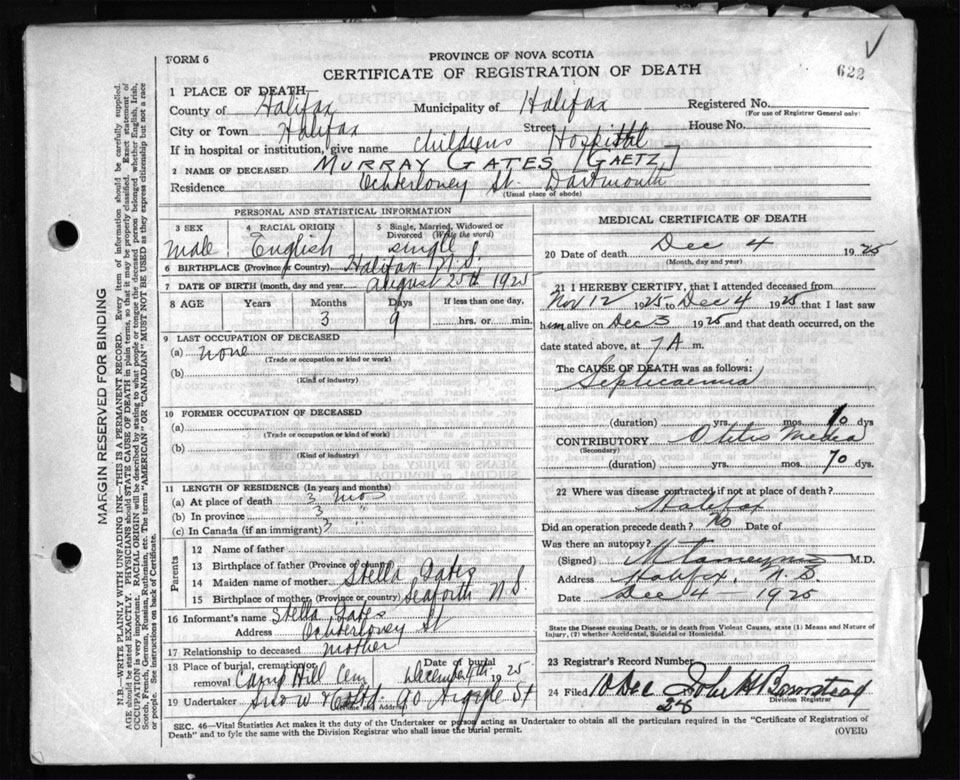 FORM 6
PROVINCE OF NOVA SCOTIA
CERTIFICATE OF REGISTRATION OF DEATH
622
1 PLACE OF DEATH
County of Halifax Municipality of Halifax Registered No.
(For use of Registrar General only)
City or Town Halifax Street House No.
If in hospital or institution, give name Childrens Hospital
2 NAME OF DECEASED MURRAY GATES [GAETZ]
Residence Ochterloney St. Dartmouth
(Usual place of abode)
PERSONAL AND STATISTICAL INFORMATION
3 SEX 4 RACIAL ORIGIN 5 Single, Married, Widowed or Divorced (Write the word)
male English single
6 BIRTHPLACE (Province or Country) Halifax N.S.
7 DATE OF BIRTH (month, day and year) august 25th 1925
8 AGE Years Months Days If less than one day,
3 9 hrs. or min.
9 LAST OCCUPATION OF DECEASED
(a) none
(Trade or occupation or kind of work)
(b)
(Kind of industry)
10 FORMER OCCUPATION OF DECEASED
(a)
(Trade or occupation or kind of work)
(b)
(Kind of industry)
11 LENGTH OF RESIDENCE (In years and months)
(a) At place of death 3 mos
(b) In province 3 "
(c) In Canada (if an immigrant) 3
Parents
12 Name of father
13 Birthplace of father (Province or country)
14 Maiden name of mother Stella Gates
15 Birthplace of mother (Province or country) Seaforth N.S.
16 Informant's name Stella Gates
Address Ochterloney St
17 Relationship to deceased mother
18 Place of burial, cremation or removal Camp Hill Cem Date of burial December 1925
19 Undertaker Snow & Co Ltd. 90 Argyle St
(Name and Address)
MEDICAL CERTIFICATE OF DEATH
20 Date of death Dec 4 1925
(Month, day and year)
21 I HEREBY CERTIFY, that I attended deceased from
Nov 12 1925 to Dec 4 1925 that I last saw
him alive on Dec 3 1925 and that death occurred, on the
date stated above, at 7 A m.
The CAUSE OF DEATH was as follows:
Septicaemia
(duration) yrs. mos. 10 dys
CONTRIBUTORY Otitis Media
(Secondary)
(duration) yrs. mos. 70 dys.
22 Where was disease contracted if not at place of death?
Halifax
Did an operation precede death? No Date of
Was there an autopsy?
(Signed) M.D.
Address Halifax, N.S.
Date Dec 4 - 1925
State the Disease causing Death, or in death from Violent Causes, state (1) Means and Nature of Injury, (2) whether Accidental, Suicidal or Homicidal.
23 Registrar's Record Number
24 Filed 10 Dec John H Barnstead
Division Registrar
SEC. 46—Vital Statistics Act makes it the duty of the Undertaker or person acting as Undertaker to obtain all the particulars required in the "Certificate of Registration of
Death" and to fyle the same with the Division Registrar who shall issue the burial permit.
(OVER)
MARGIN RESERVED FOR BINDING
N.B.—WRITE PLAINLY WITH UNFADING INK—THIS IS A PERMANENT RECORD. Every item of information should be carefully supplied.
AGE should be stated EXACTLY. PHYSICIANS should STATE CAUSE OF DEATH in plain terms, so that it may be properly classified. Exact statement of
OCCUPATION is very important. RACIAL ORIGIN will be described by stating to what people or tongue the deceased person belonged whether English, Irish,
Scotch, French, German, Russian, Ruthenian, etc. The terms "AMERICAN" OR "CANADIAN" MUST NOT BE USED as they express citizenship but not a race
or people. See instructions on back of Certificate.